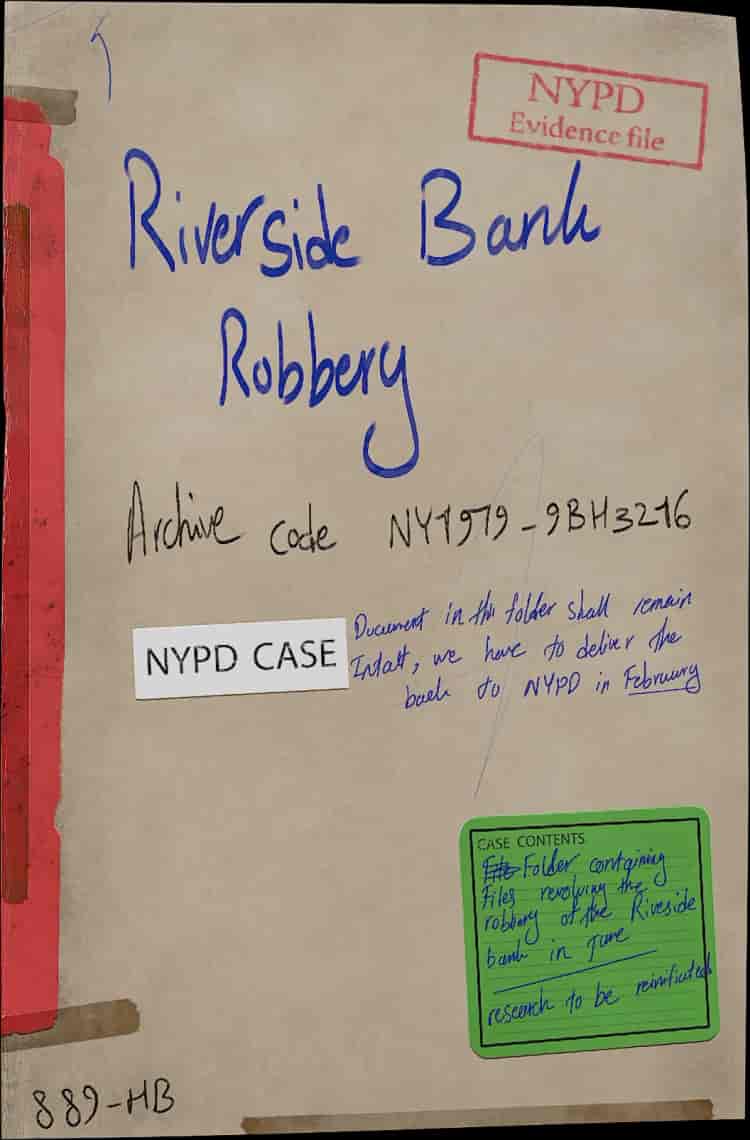 NYPD
Evidence file
Riverside Bank
Robbery
Archive code NY1979-9BH3216
NYPD CASE
Document in this folder shall remain
Intatt, we have to deliver the
back to NYPD in February
CASE CONTENTS
File Folder containing
Files revolving the
robbery of the Riveside
bank in June
research to be reinitiated
889-HB